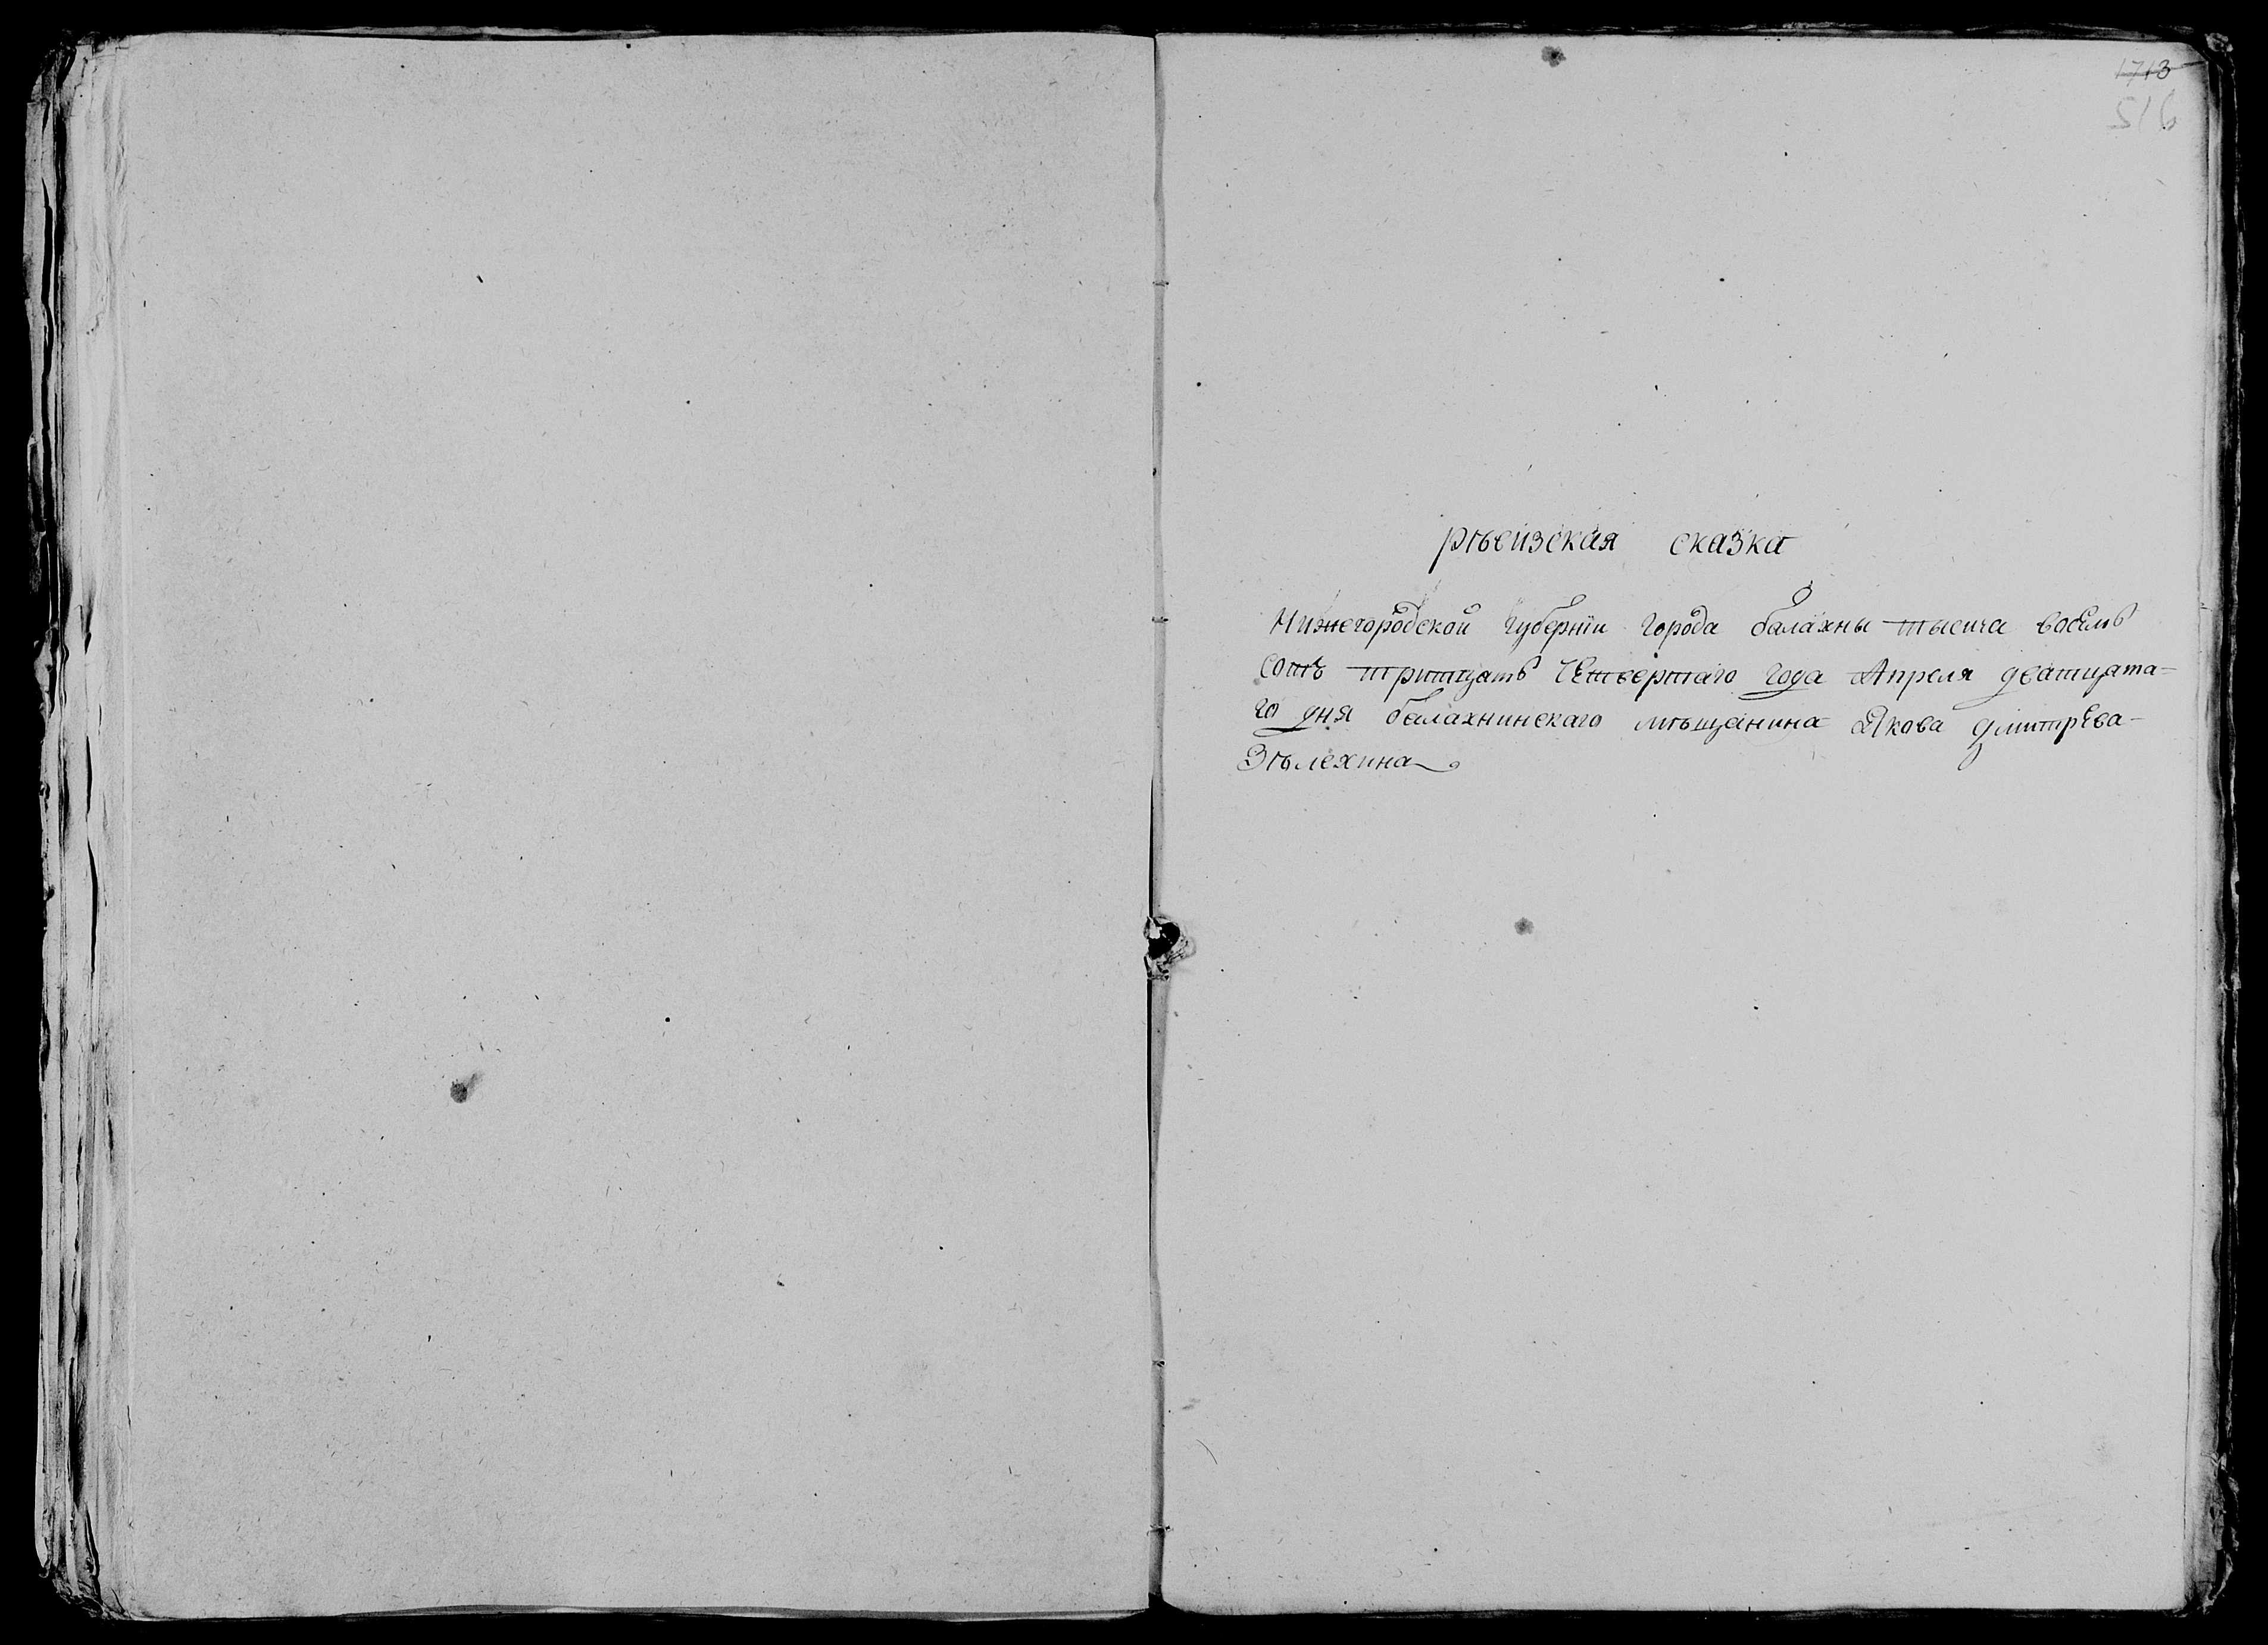 1713
516
рѣвизская сказка
Нижегородской губернїи города балахны тысича восемь
сотъ тритцать Четвертаго года Апреля дватцата-
го дня балахнинскаго мѣщанина Якова дмитрева-
Зѣлехина